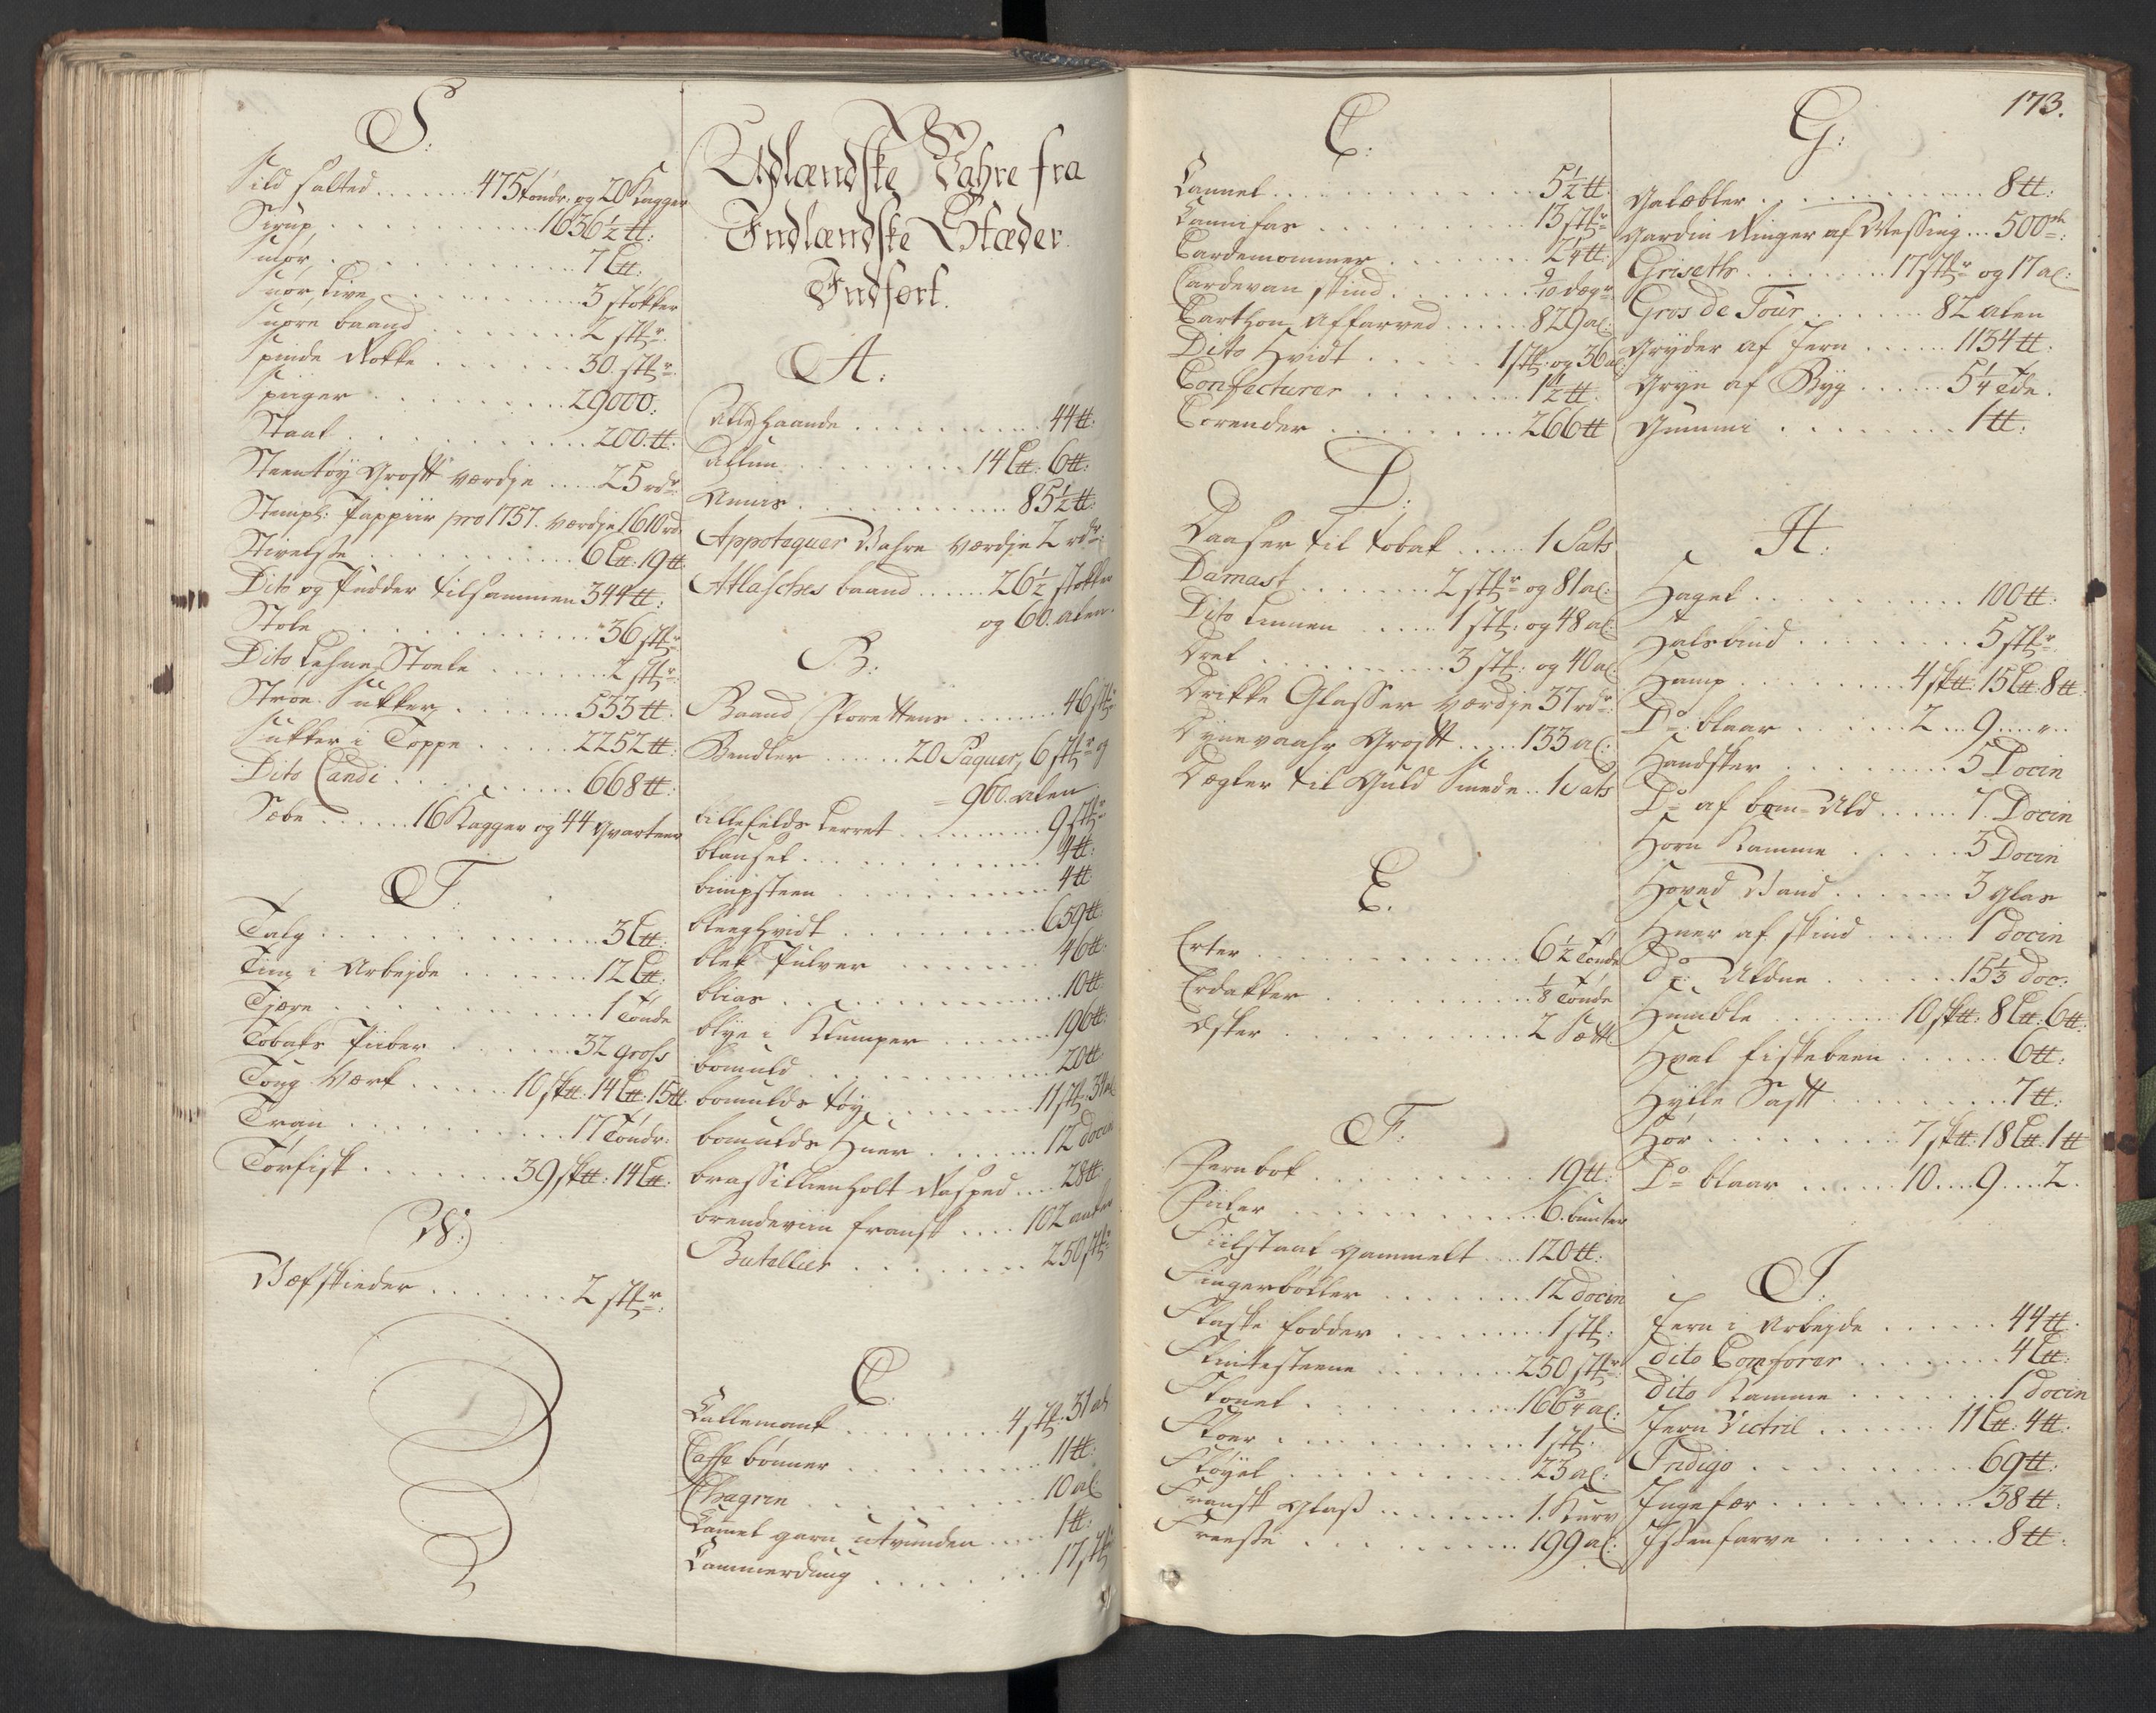 S:
Sild salted ....... 475 tønder: og 20 Kagger
Sirup .......... 1636½ ℔:
Smør .......... 7 L℔:
Snør Live .......... 3 støkker
Snøre baand ....... 2 stkr:
Spinde Rokke ...... 30. stkr:
Spiiger ......... 29000:
Staal ............ 200. ℔:
Steentøy Groft værdje ..... 25 rdr:
Stempl: Pappiir pro 1757. værdje 1610 rd
Stivelsse .......... 6 L℔: 19 ℔
Dito og Pudder tilsammen 344 ℔:
Stole .......... 36 stkr
Dito Lehne Stoele ....... 2 stkr:
Stroe Sukker ....... 533 ℔:
Sukker i Toppe ..... 2252 ℔:
Dito Candi ......... 668 ℔:
Sæbe ...... 16 Kagger og 44 qvarteer
T:
Talg ............ 3 L℔:
Tinn i Arbejde ....... 12 L℔:
Tjære ............ 1 Tønde
Tobaks Piiber ....... 32 gross
Toug Værk ..... 10 sk℔: 14 L℔: 15 ℔.
Tran .......... 17 Tøndr:
Tørfisk ....... 39 sk℔: 14 L℔:
W:
Væfskieder ....... 2 stkr:
Udlændske Wahre fra
Indlændske Stæder
Indført.
A:
Allehaande .......... 44 ℔:
Allun ......... 14 L℔: 6 ℔:
Annis .......... 85½ ℔:
Appotequer Vahre værdje 2 rdr:
Atlasches baand ...... 26½ støkker
og 60. alen.
B:
Baand Florettens ....... 46 stkr
Bendler ...... 20 Paquer, 6 stkr og
= 960. alen
billefelds Lerret .......... 9 stkr
blausel ............ 4 ℔:
bimpsteen .......... 4 ℔
bleeghvidt .......... 659 ℔:
blek Pulver ....... 46 ℔:
blias ............ 10 ℔:
blye i Klumper ...... 196 ℔:
bomuld ............ 20 ℔:
bomulds tøy ....... 11 stk: 34 al
bomulds Huer ....... 12 docin
brassillienholt Rasped .... 28 ℔:
brendeviin fransk .... 102 anker
Butellier ......... 250 stkr
C:
Callemank ......... 4 stk: 31 al
Caffe bønner .......... 11 ℔:
Chagrin ........... 10 al
Camel garn utvunden ... 1 ℔:
Cammerdiug ....... 17 stkr
173.
C:
Cannel ............ 5½ ℔:
Cannifas .......... 13 stkr
Cardemommer ....... 2¼ ℔:
Cardevan skind ....... 9/10 degr
Carthon Affarved ...... 829 al:
Dito Hvidt ..... 1 stk: og 36 al
Confecturer ....... 1½ ℔:
Corender ......... 266 ℔
D:
Daaser til tobak ...... 1 Sats
Damast ....... 2 stkr og 81 al:
Dito Linnen ..... 1 stk: og 48 al:
Drel .......... 3 stk: og 40 al
Drikke Glasser værdje 37 rdr:
Dynevaahr Groft ..... 133 al:
Dægler til Guld Smede .. 1 Sats
E.
Erter ............ 6½ Tønde
Erdakker .......... ⅛ Tønde
Esker .......... 2 Sætt
F:
Fernbok .......... 19 ℔:
Fiiler .......... 6. bunter
Fiilstaal gammelt .... 120 ℔:
Fingerbøller ....... 12 docin
Flaske fodder ....... 1 stk:
Flintesteene ....... 250 stkr
Flonel ......... 166¾ al:
Floer .......... 1 stk:
Fløyel .......... 23 al:
Fransk glass ....... 1. Kurv
Freesse .......... 199 al:
G:
Galæbler .......... 8 ℔:
Gardin Ringer af Messing ... 500 stk:
Grisette ......... 17 stkr og 17 al:
Gros de Tour ....... 82 alen
Gryder af Jern ...... 1134 ℔:
Gryn af Byg ...... 5¼ Tde.
Gummi ......... 1 ℔:
H:
Hagel .......... 100 ℔:
Halsbind ........ 5 stkr
Hamp ......... 4 sk℔: 15 L℔: 8 ℔:
Do blaar ...... 2 ... 9 ... " ..
Handsker ......... 5 Docin
Do af bom=Uld ...... 7. Docin
Horn Kamme ...... 3 Docin
Hoved Vand ....... 3 glas
Huer af skind ..... 1 docin
do: Uldne ....... 15⅓ doc:
Humble ....... 10 sk℔: 8 L℔: 6 ℔:
Hval fiskebeen ...... 6 ℔:
Hylle Saft ......... 7 ℔:
Hør ......... 7 sk℔: 18 L℔: 1 ℔
Do blaar ...... 10 .... 9 .... 2.
I:
Jern i Arbejde ...... 44 ℔.
dito Comforer ....... 4 L℔:
dito Kamme ........ 1 docin
Jern Victril ...... 11 L℔: 4 ℔:
Indigo ......... 69 ℔:
Ingefær ......... 38 ℔:
Issenfarve ........ 8 ℔: